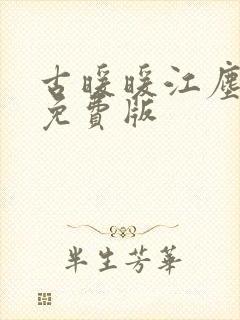 古暖暖江塵
免費版
半生芳華